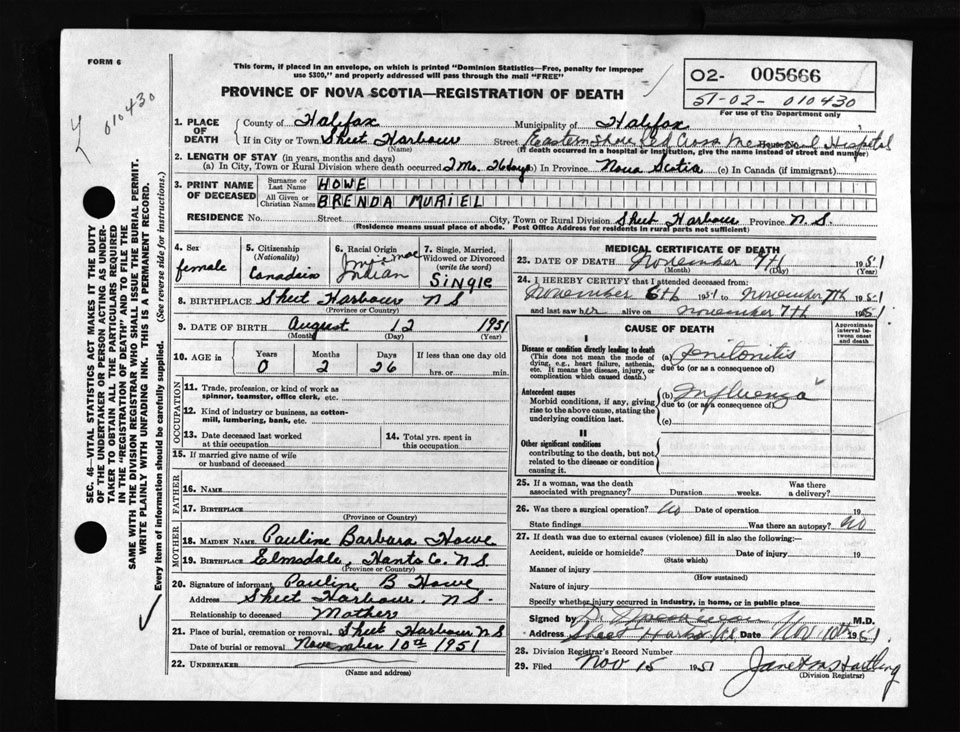 FORM 6
This form, if placed in an envelope, on which is printed "Dominion Statistics—Free, penalty for improper
use $300," and properly addressed will pass through the mail "FREE"
PROVINCE OF NOVA SCOTIA—REGISTRATION OF DEATH
O2- 005666
51-02-010430
For use of the Department only
010430
SEC. 46—VITAL STATISTICS ACT MAKES IT THE DUTY
OF THE UNDERTAKER OR PERSON ACTING AS UNDER-
TAKER TO OBTAIN ALL THE PARTICULARS REQUIRED
IN THE "REGISTRATION OF DEATH" AND TO FILE THE
SAME WITH THE DIVISION REGISTRAR WHO SHALL ISSUE THE BURIAL PERMIT.
WRITE PLAINLY WITH UNFADING INK. THIS IS A PERMANENT RECORD.
Every item of information should be carefully supplied. (See reverse side for instructions.)
1. PLACE OF DEATH
County of Halifax Municipality of Halifax
If in City or Town Sheet Harbour Street Eastern Shore Red Cross Memorial Hospital House No.
(Name) (If death occurred in a hospital or institution, give the name instead of street and number)
2. LENGTH OF STAY (in years, months and days)
(a) In City, Town or Rural Division where death occurred 2 Mo. 26 days (b) In Province Nova Scotia (c) In Canada (if immigrant)
3. PRINT NAME OF DECEASED
Surname or Last Name HOWE
All Given or Christian Names BRENDA MURIEL
RESIDENCE No. Street City, Town or Rural Division Sheet Harbour Province N.S.
(Residence means usual place of abode. Post Office Address for residents in rural parts not sufficient)
4. Sex
female
5. Citizenship
(Nationality)
Canadein
6. Racial Origin
Micmac
Indian
7. Single, Married,
Widowed or Divorced
(write the word)
SINGLE
8. BIRTHPLACE Sheet Harbour NS
(Province or Country)
9. DATE OF BIRTH August 12 1951
(Month) (Day) (Year)
10. AGE in Years Months Days If less than one day old
0 2 26 hrs. or min.
OCCUPATION
11. Trade, profession, or kind of work as
spinner, teamster, office clerk, etc.
12. Kind of industry or business, as cotton-
mill, lumbering, bank, etc.
13. Date deceased last worked
at this occupation
14. Total yrs. spent in
this occupation
15. If married give name of wife
or husband of deceased
FATHER
16. NAME
17. BIRTHPLACE
(Province or Country)
MOTHER
18. MAIDEN NAME Pauline Barbara Howe
19. BIRTHPLACE Elmsdale, Hants Co. N.S.
(Province or Country)
20. Signature of informant Pauline B Howe
Address Sheet Harbour, N.S.
Relationship to deceased Mother
21. Place of burial, cremation or removal Sheet Harbour N.S
Date of burial or removal November 10th 1951
22. UNDERTAKER
(Name and Address)
MEDICAL CERTIFICATE OF DEATH
23. DATE OF DEATH November 7th 1951
(Month) (Day) (Year)
24. I HEREBY CERTIFY that I attended deceased from:
November 6th 1951 to November 7th 1951
and last saw her alive on November 7th 1951
CAUSE OF DEATH
Approximate interval between onset and death
I
Disease or condition directly leading to death
(This does not mean the mode of
dying, e.g., heart failure, asthenia,
etc. It means the disease, injury, or
complication which caused death.)
(a) Peritonitis
due to (or as a consequence of)
Antecedent causes
Morbid conditions, if any, giving
rise to the above cause, stating the
underlying condition last.
(b) Influenza
due to (or as a consequence of)
(c)
II
Other significant conditions
contributing to the death, but not
related to the disease or condition
causing it.
25. If a woman, was the death
associated with pregnancy? Duration weeks. Was there
a delivery?
26. Was there a surgical operation? No Date of operation 19
State findings Was there an autopsy? No
27. If death was due to external causes (violence) fill in also the following:—
Accident, suicide or homicide? Date of injury 19
(State which)
Manner of injury
(How sustained)
Nature of injury
Specify whether injury occurred in industry, in home, or in public place
Signed by M.D.
Address Sheet Harbour Date Nov 10th 1951
28. Division Registrar's Record Number
29. Filed Nov 15 1951
(Division Registrar)